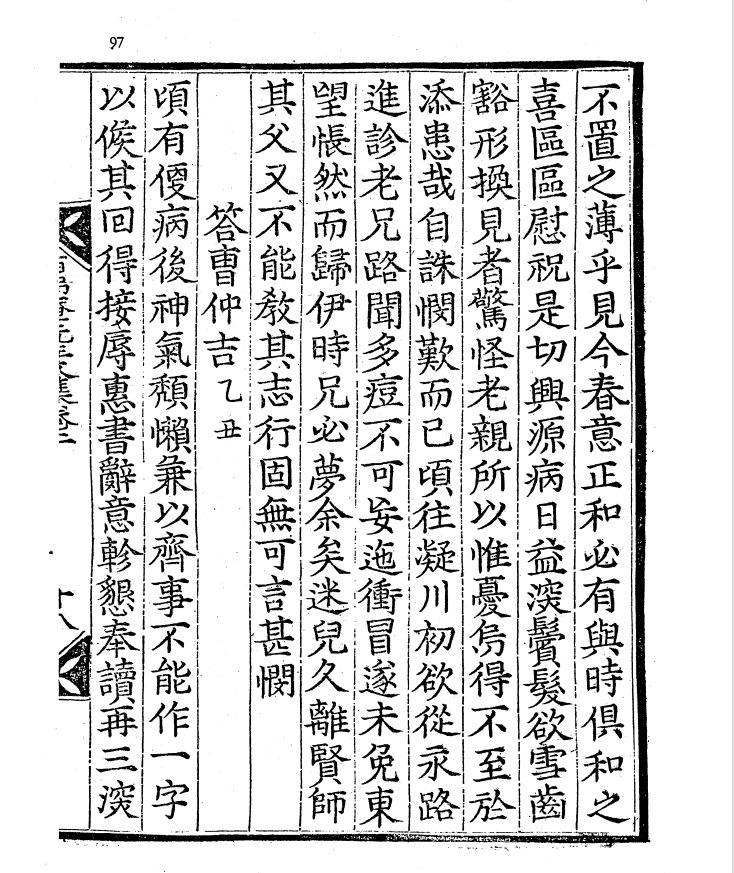 97
不置之薄乎見今春意正和必有與時俱和之
喜區區慰祝是切興源病日益深鬢髮欲雪齒
豁形換見者驚怪老親所以惟憂烏得不至於
添患哉自誅憫歎而已頃往凝川初欲從永路
進診老兄路聞多痘不可妄迤衝冒遂未免東
望悵然而歸伊時兄必夢余矣迷兒久離賢師
其父又不能敎其志行固無可言甚憫
答曺仲吉乙丑
頃有傻病後神氣頹懶兼以齊事不能作一字
以候其回得接辱惠書辭意軫懇奉讀再三深
十八